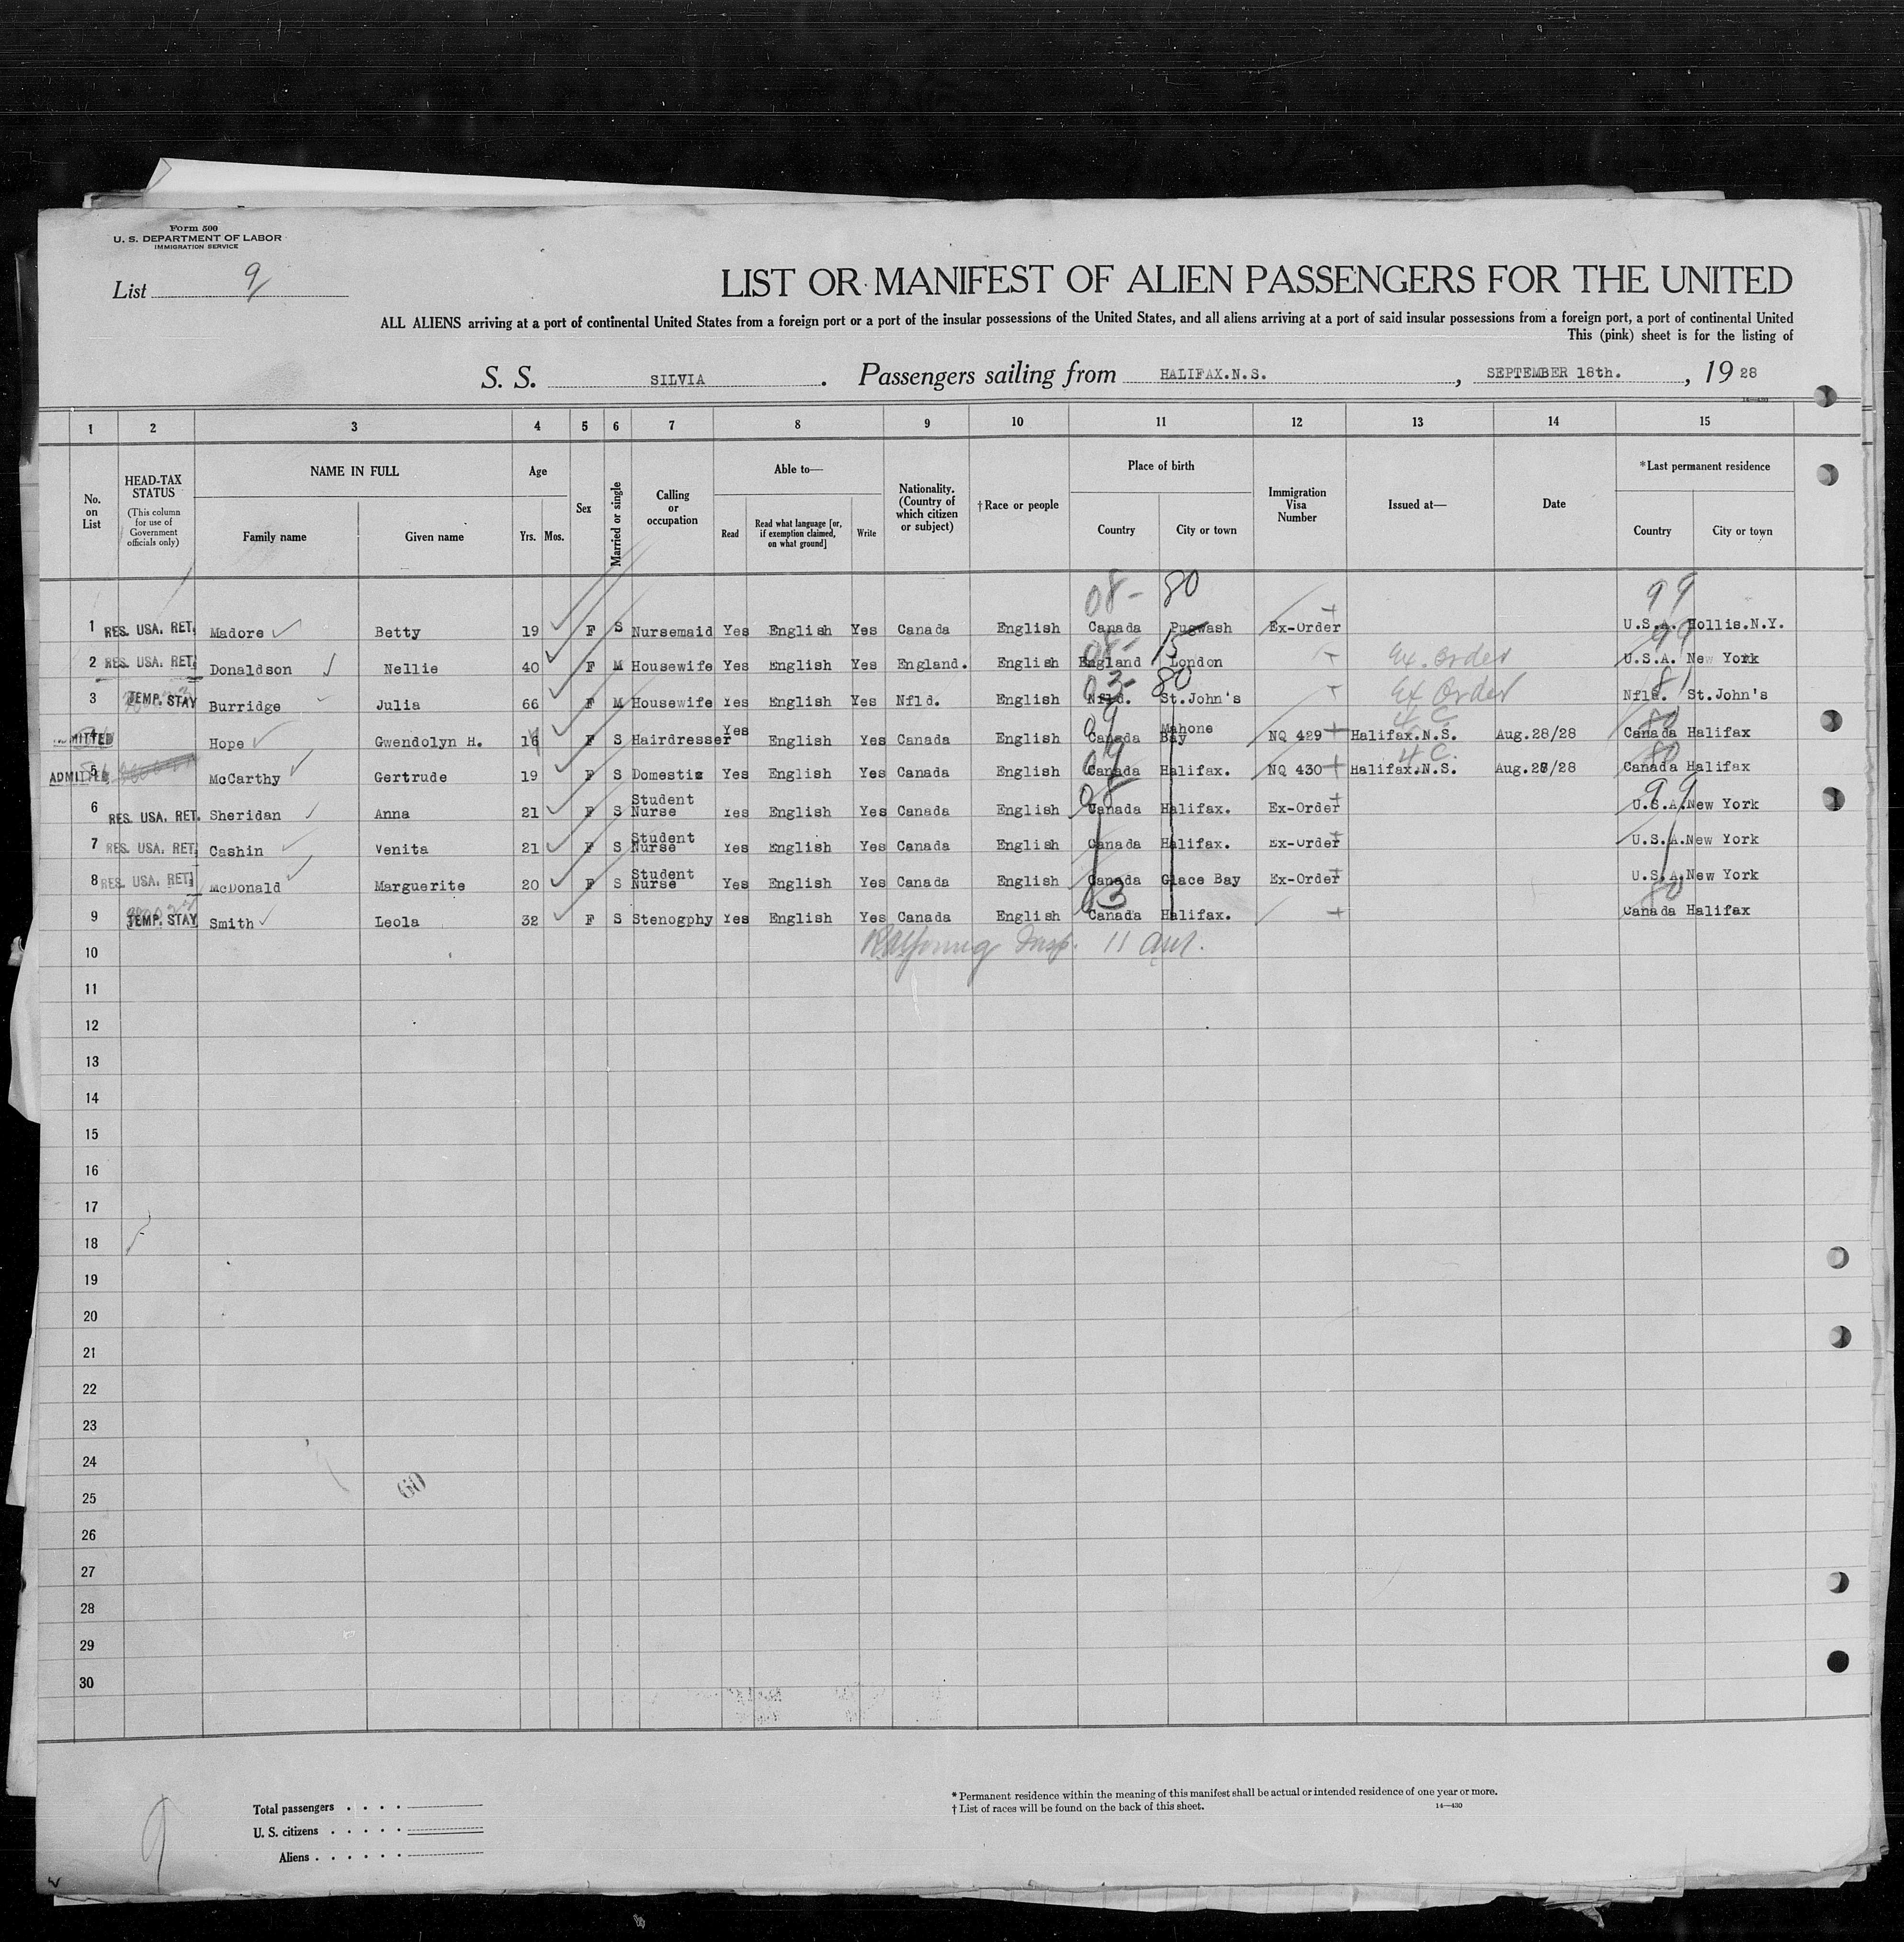 Form 500
U. S. DEPARTMENT OF LABOR
IMMIGRATION SERVICE
List 9
LIST OR MANIFEST OF ALIEN PASSENGERS FOR THE UNITED
ALL ALIENS arriving at a port of continental United States from a foreign port or a port of the insular possessions of the United States, and all aliens arriving at a port of said insular possessions from a foreign port, a port of continental United
This (pink) sheet is for the listing of
S. S. SILVIA. Passengers sailing from HALIFAX.N.S., SEPTEMBER 18th., 19 28
14—430
1 2 3 4 5 6 7 8 9 10 11 12 13 14 15
No. on List
HEAD-TAX STATUS (This column for use of Government officials only)
NAME IN FULL Family name Given name
Age Yrs. Mos.
Sex
Married or single
Calling or occupation
Able to— Read Read what language [or, if exemption claimed, on what ground] Write
Nationality. (Country of which citizen or subject)
†Race or people
Place of birth Country City or town
Immigration Visa Number
Issued at—
Date
*Last permanent residence Country City or town
08- 80 99
1 RES. USA. RET. Madore Betty 19 F S Nursemaid Yes English Yes Canada English Canada Pugwash Ex-Order U.S.A. Hollis.N.Y.
08- 15 99
2 RES. USA. RET. Donaldson Nellie 40 F M Housewife Yes English Yes England. English England London Ex. Order U.S.A. New York
03- 80 81
3 TEMP. STAY Burridge Julia 66 F M Housewife Yes English Yes Nfld. English Nfld. St.John's Ex Order Nfld. St.John's
09 4 C 80
4 ADMITTED Hope Gwendolyn H. 16 F S Hairdresser Yes Yes Canada English Canada Mahone Bay NQ 429 Halifax.N.S. Aug.28/28 Canada Halifax
09 4 C. 80
5 ADMITTED McCarthy Gertrude 19 F S Domestic Yes English Yes Canada English Canada Halifax. NQ 430 Halifax.N.S. Aug.28/28 Canada Halifax
08 99
6 RES. USA. RET. Sheridan Anna 21 F S Student Nurse Yes English Yes Canada English Canada Halifax. Ex-Order U.S.A. New York
7 RES. USA. RET. Cashin Venita 21 F S Student Nurse Yes English Yes Canada English Canada Halifax. Ex-Order U.S.A. New York
8 RES. USA. RET. McDonald Marguerite 20 F S Student Nurse Yes English Yes Canada English Canada Glace Bay Ex-Order U.S.A. New York
03 80
9 TEMP. STAY Smith Leola 32 F S Stenogphy Yes English Yes Canada English Canada Halifax. Canada Halifax
10 Insp.
11
12
13
14
15
16
17
18
19
20
21
22
23
24
60
25
26
27
28
29
30
9
Total passengers . . . .
U. S. citizens . . . . .
Aliens . . . . . .
* Permanent residence within the meaning of this manifest shall be actual or intended residence of one year or more.
† List of races will be found on the back of this sheet. 14—430